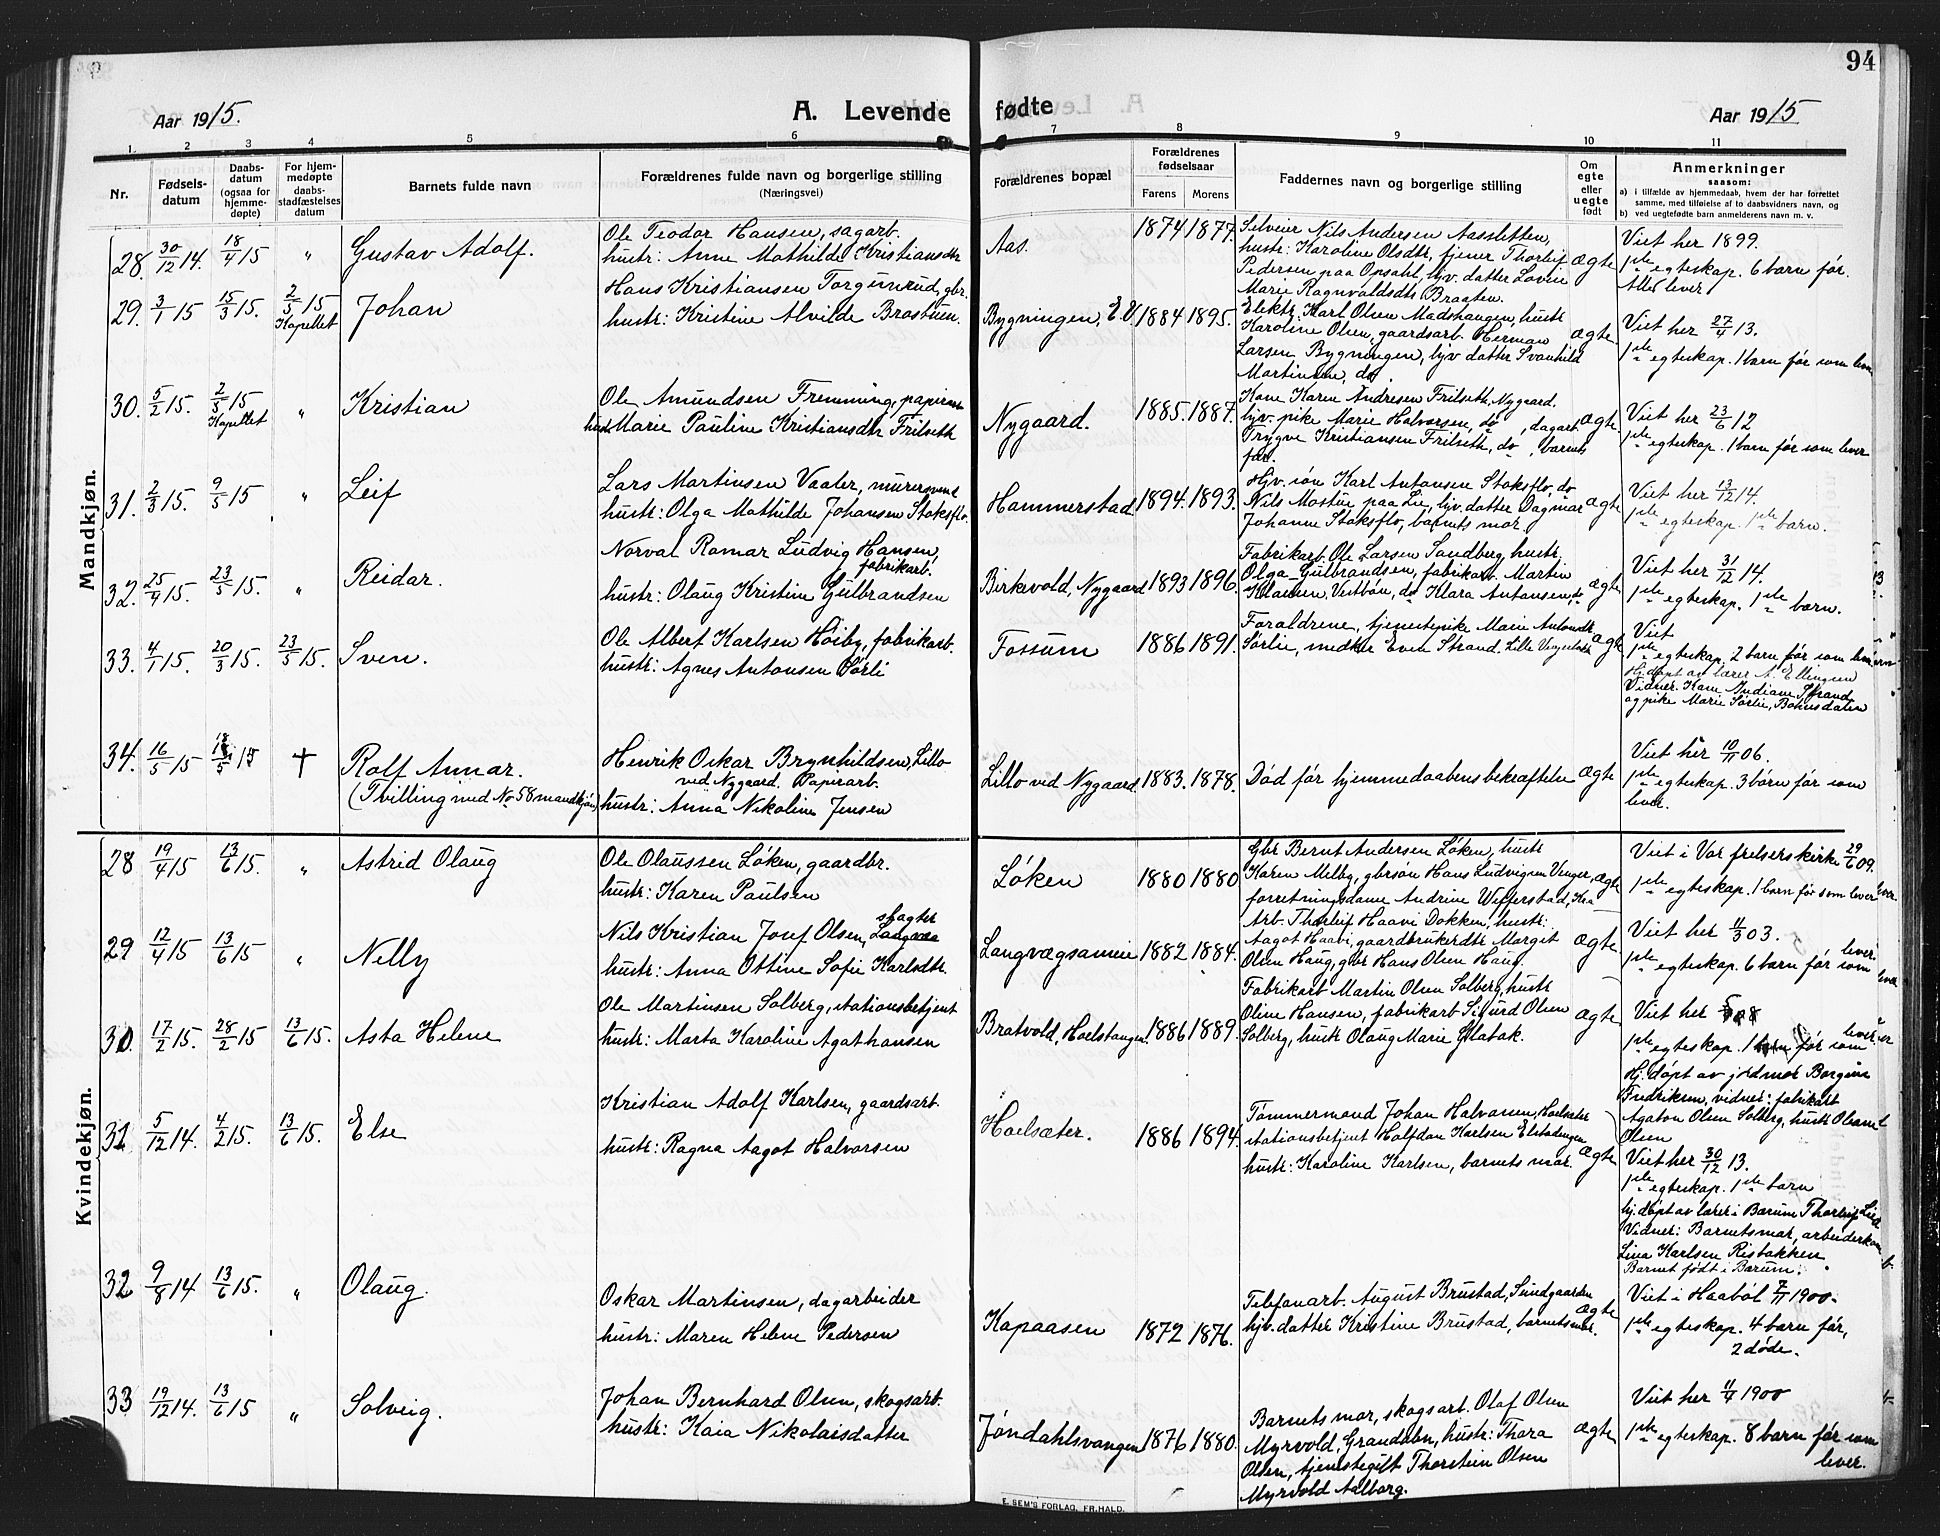 94
Aar 1915.
A. Levende
fødte
Aar 1915
1. 2 3 4 5 6 7 8 9 10 11
Nr.
Fødsels-
datum
Daabs-
datum
(ogsaa for
hjemme-
døpte)
For hjem-
medøpte
daabs-
stadfæstelses
datum
Barnets fulde navn
Forældrenes fulde navn og borgerlige stilling
(Næringsvei)
Forældrenes bopæl
Forældrenes
fødselsaar
Farens Morens
Faddernes navn og borgerlige stilling
Om
egte
eller
uegte
født
Anmerkninger
saasom:
a) i tilfælde av hjemmedaab, hvem der har forrettet
samme, med tilføielse af to daabsvidners navn, og
b) ved uegtefødte barn anmelderens navn m. v.
Mandkjøn.
28. 30/12 14. 18/4 15 " Gustav Adolf.
Ole Teodor Hansen, sagarb.
hustr: Anne Mathilde Kristiansdtr
Aas. 1874 1877.
Selveier Nils Andersen Aassletten,
hustr: Karoline Olsdtr, tjener Thorleif
Pedersen paa Opsahl, hjv. datter Lovise
Marie Ragnvaldsdtr Braaten.
Ægte
Viet her 1899.
1ste egteskap. 6 barn før.
Alle lever.
29. 3/1 15 15/3 15. 2/5 15 Kapellet Johan
Hans Kristiansen Torgunrud, gbr.
hustr: Kristine Alvilde Brastuen.
Bygningen, E.V. 1884 1895.
Elektr. Karl Olsen Madshaugen, hustr
Karoline Olsen, gaardsarb. Herman
Larsen, Bygningen, hjv datter Svanhild
Martinsen, do.
Ægte
Viet her 27/4 13.
1ste egteskap. 1 barn før som lever
30. 5/2 15. 2/5 15 Kapellet " Kristian
Ole Amundsen Fremming, papirarb
hustr Marie Pauline Kristiansdtr Frilseth
Nygaard. 1885. 1887.
Kone Karen Andresen Frilseth, Nygaard.
hjv. pike Marie Halvorsen, do, dagarb.
Trygve Kristiansen Frilseth, do, barnets
far.
Ægte
Viet her 23/6 12
1ste egteskap. 1 barn før som lever
31. 2/3 15. 9/5 15 " Leif
Lars Martinsen Vaaler, murersvend
hustr: Olga Mathilde Johansen Stoksflo.
Hammerstad 1894. 1893.
Hjv. søn Karl Antonsen Stoksflo, do
Nils Mostue paa Lie, hjv. datter Dagmar
Johanne Stoksflo, barnets mor.
Ægte
Viet her 13/12 14.
1ste egteskap. 1ste barn.
32. 25/4 15. 23/5 15. " Reidar.
Norval Romar Ludvig Hansen,
fabrikarb.
hustr: Olaug Kristine Gulbrandsen
Birkvold, Nygaard 1893 1896.
Fabrikarb. Ole Larsen Sandberg, hustr.
Olga Gulbrandsen, fabrikarb. Martin
Klausen, Vestbøn, do Klara Antonsen, do
Ægte
Viet her 31/12 14.
1ste egteskap. 1ste barn.
33. 4/1 15. 20/3 15. 23/5 15. Sven.
Ole Albert Karlsen Høiby, fabrikarb.
hustr: Agnes Antonsen Sørli
Fossum 1886 1891.
Forældrene, tjenestepike Marie Antonsdtr
Sørlie, Even Strand.
Ægte
Viet
1ste egteskap. 2 barn før som lever
Hj.døpt av lærer A. Ellingsen
Vidner: Kone Indiane Strand
og pike Marie Sørlie, Bohusdalen
34. 16/5 15 18/5 15 † Rolf Annar.
(Tvilling med No 58 mandkjøn)
Henrik Oskar Brynhildsen, Lillo
ved Nygaard. Papirarb.
hustr: Anna Nikoline Jensen
Lillo ved Nygaard 1883. 1878.
Død før hjemmedaabens bekræftelse
Ægte
Viet her 10/11 06.
1ste egteskap. 3 barn før som
lever.
Kvindekjøn.
28 19/4 15 13/6 15. " Astrid Olaug
Ole Olaussen Løken, gaardbr.
hustr: Karen Paulsen
Løken 1880 1880
Gbr Bernt Andersen Løken, hustr
Karen Melby, gbrsøn Hans Ludvigsen Venger,
forretningsdame Andrine Wefferstad, Kra
Ægte
Viet i Vor frelsers kirke 29/6 09.
1ste egteskap. 1 barn før som lever
29 12/4 15 13/6 15 " Nelly
Nils Kristian Josef Olsen, Langvæg
hustr: Anna Ottine Sofie Karlsdtr.
Langvægsameie 1882 1884.
Arb. Thorleif Haavi Dokken, hustr:
Aagot Haavi, gaardbrukerdtr Margit
Olsen Haug, gbr Hans Olsen Haug.
Ægte
Viet her 11/3 03.
1ste egteskap. 6 barn før som lever.
30. 17/2 15. 28/2 15 13/6 15. Asta Helene
Ole Martinsen Solberg, stationsbetjent
hustr: Marta Karoline Agathansen
Bratvold, Hoelstangen. 1886 1889.
Fabrikarb Martin Olsen Solberg, hustr
Oline Hansen, fabrikarb Sigurd Olsen
Solberg, hustr Olaug Marie Slabak.
Ægte
Viet her
1ste egteskap. 1 barn før som lever.
Hj.døpt av jordmor Borgine
Fredriksen, vidner: fabrikarb
Agaton Olsen Solberg, hustr
Olsen
31 5/12 14. 4/2 15. 13/6 15. Else
Kristian Adolf Karlsen, gaardsarb.
hustr: Ragna Aagot Halvorsen
Hoelsæter. 1886 1894.
Tømmermand Johan Halvorsen, Hoelsæter
stationsbetjent Halfdan Karlsen Elstadengen
hustr: Karoline Karlsen, barnets mor.
Ægte
Viet her 30/12 13.
1ste egteskap. 1ste barn
hj.døpt av lærer i Bærum Thorleif Lied
Vidner: Barnets mor, arbeiderkone
Lina Karlsen Risbakken
Barnet født i Bærum.
32 9/8 14 13/6 15. " Olaug.
Oskar Martinsen, dagarbeider
hustr: Maren Helene Pedersen
Kapaasen 1872 1876.
Telefonarb. August Brustad, Sundgaarden
hjv. datter Kristine Brustad, barnets mor.
Ægte
Viet i Haabøl 7/11 1900.
1ste egteskap. 4 barn før,
2 døde.
33 19/12 14. 13/6 15 " Solveig.
Johan Bernhard Olsen, skogsarb.
hustr: Kaia Nikolaisdatter
Jøndahlsvangen 1876 1880.
Barnets mor, skogsarb. Olaf Olsen
Myrvold, Grandalen, hustr: Thora
Olsen, tjenestegift Thorstein Olsen
Myrvold Aalborg.
Ægte
Viet her 11/4 1900
1ste egteskap. 8 barn før som
lever.
E. SEM'S FORLAG, FR.HALD.